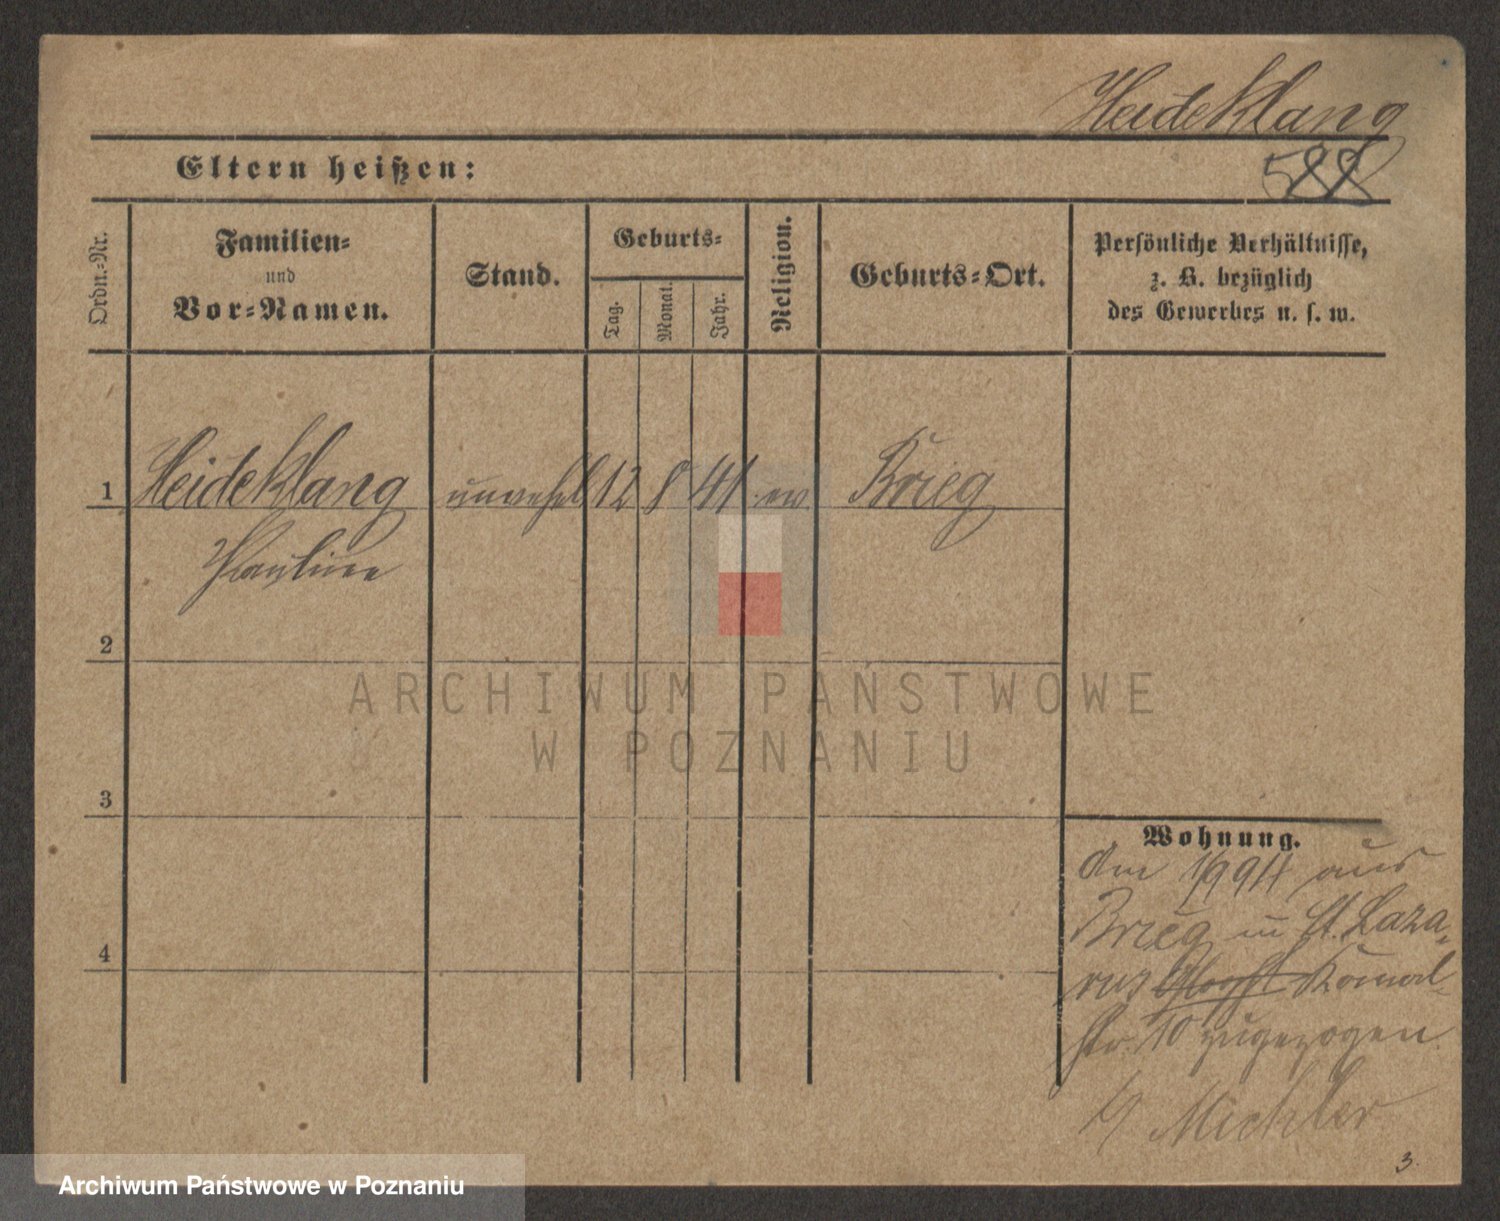 Heideklang
588
Eltern heißen:
Ordn.=Nr.
Familien=
und
Vor=Namen.
Stand.
Geburts=
Tag.
Monat.
Jahr.
Religion.
Geburts=Ort.
Persönliche Verhältnisse,
z. B. bezüglich
des Gewerbes u. s. w.
1 Heideklang unvehel 12 8 41 ev Brieg
Pauline
2
3
4
Wohnung.
Am 1/9 94 aus
Brieg in St. Laza-
rus
str. 10 zugezogen.
3
ARCHIWUM PAŃSTWOWE
W POZNANIU
Archiwum Państwowe w Poznaniu